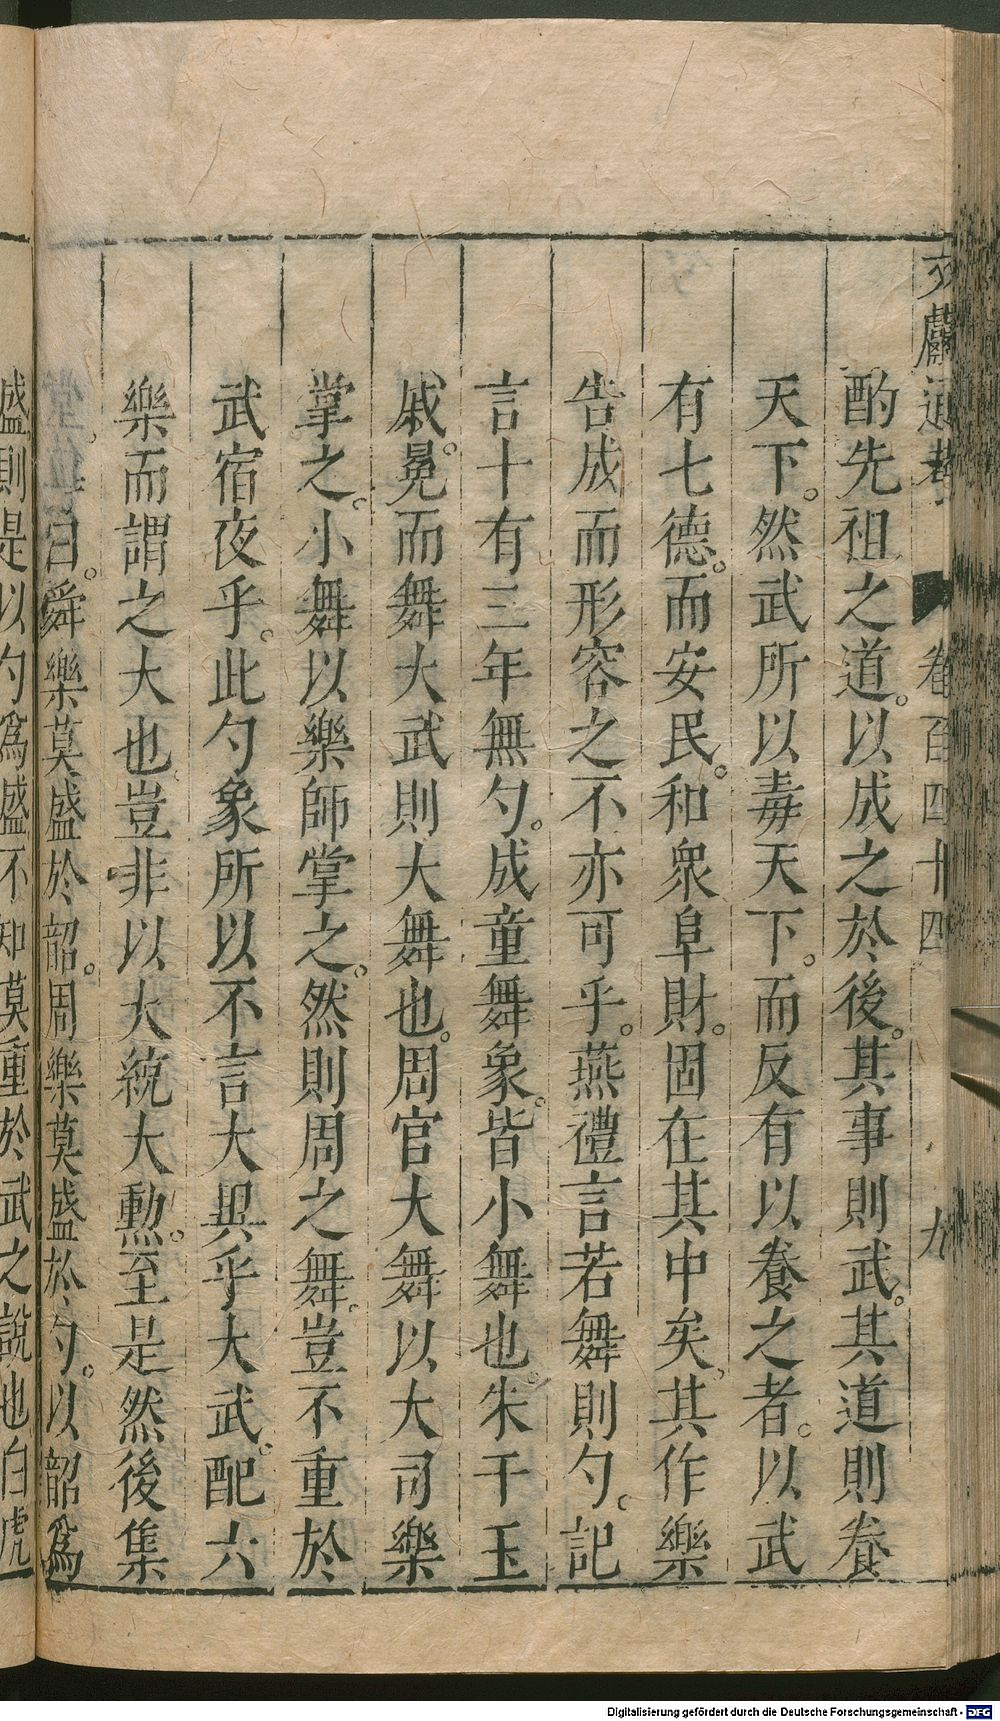 文獻通考 卷百四十四 九
酌先祖之道。以成之於後。其事則武。其道則養
天下。然武所以毒天下。而反有以養之者。以武
有七德。而安民。和衆阜財。固在其中矣。其作樂
告成而形容之不亦可乎。燕禮言若舞則勺。記
言十有三年無勺。成童舞象。皆小舞也。朱干玉
戚。冕而舞大武則大舞也。周官大舞以大司樂
掌之。小舞以樂師掌之。然則周之舞。豈不重於
武宿夜乎。此勺象所以不言大異乎大武。配六
樂而謂之大也。豈非以大統大勲。至是然後集
曰。舜樂莫盛於韶。周樂莫盛於勺。以韶爲
盛則是以勺爲盛不知莫重於武之說也白虎
Digitalisierung gefördert durch die Deutsche Forschungsgemeinschaft - DFG